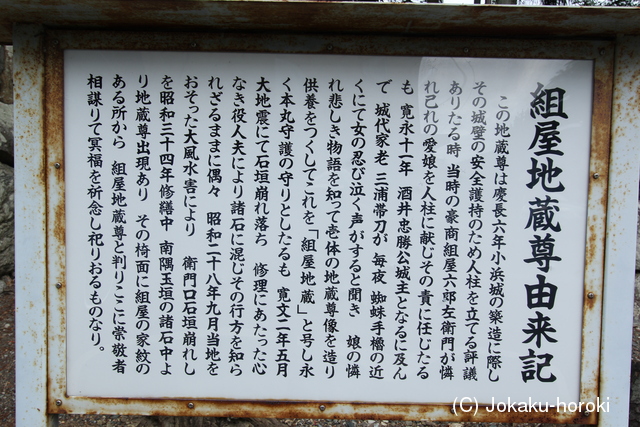 組屋地蔵尊由来記
この地蔵尊は慶長六年小浜城の築造に際し
その城壁の安全護持のため人柱を立てる評議
ありたる時 当時の豪商組屋六郎左衛門が憐
れ己れの愛娘を人柱に献じその責に任じたる
も 寛永十一年 酒井忠勝公城主となるに及ん
で 城代家老 三浦帯刀が 毎夜 蜘蛛手櫓の近
くにて女の忍び泣く声がすると聞き 娘の憐
れ悲しき物語を知って壱体の地蔵尊像を造り
供養をつくしてこれを「組屋地蔵」と号し永
く本丸守護の守りとしたるも 寛文二年五月
大地震にて石垣崩れ落ち 修理にあたった心
なき役人夫により諸石に混じその行方を知ら
れざるままに偶々 昭和二十八年九月当地を
おそった大風水害により 衛門口石垣崩れし
を昭和三十四年修繕中 南隅玉垣の諸石中よ
り地蔵尊出現あり その椅面に組屋の家紋の
ある所から 組屋地蔵尊と判りここに崇敬者
相謀りて冥福を祈念し祀りおるものなり。
(C) Jokaku-horoki